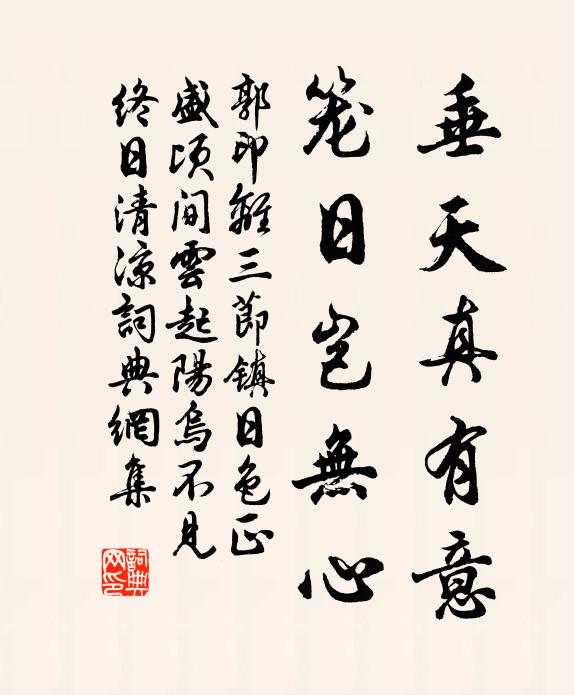 垂天真有意
笼日岂無心
郭印離三節鎮日色正
盛頃間雲起陽烏不見
終日清涼詞典網集
詞典
网印